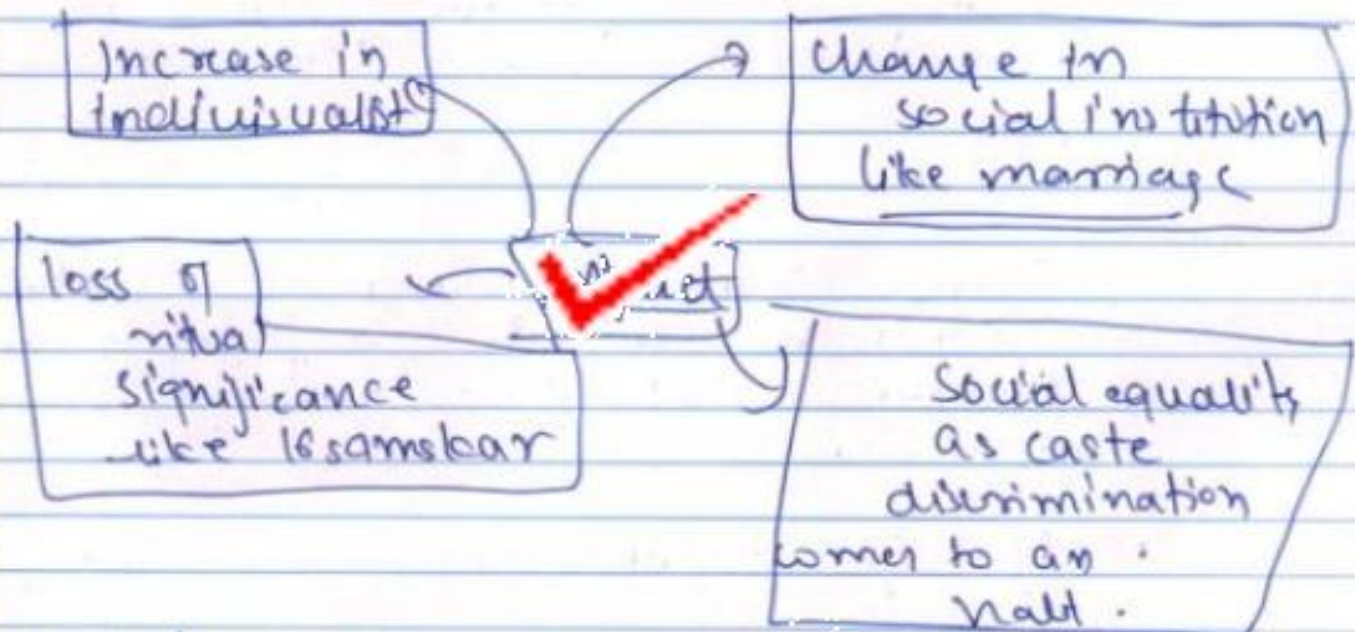 Increase in
indivijsualist
Change in
social institution
like marriage
loss of
ritual
significance
like 16 samskar
Social equality
as caste
discrimination
comes to an
halt.